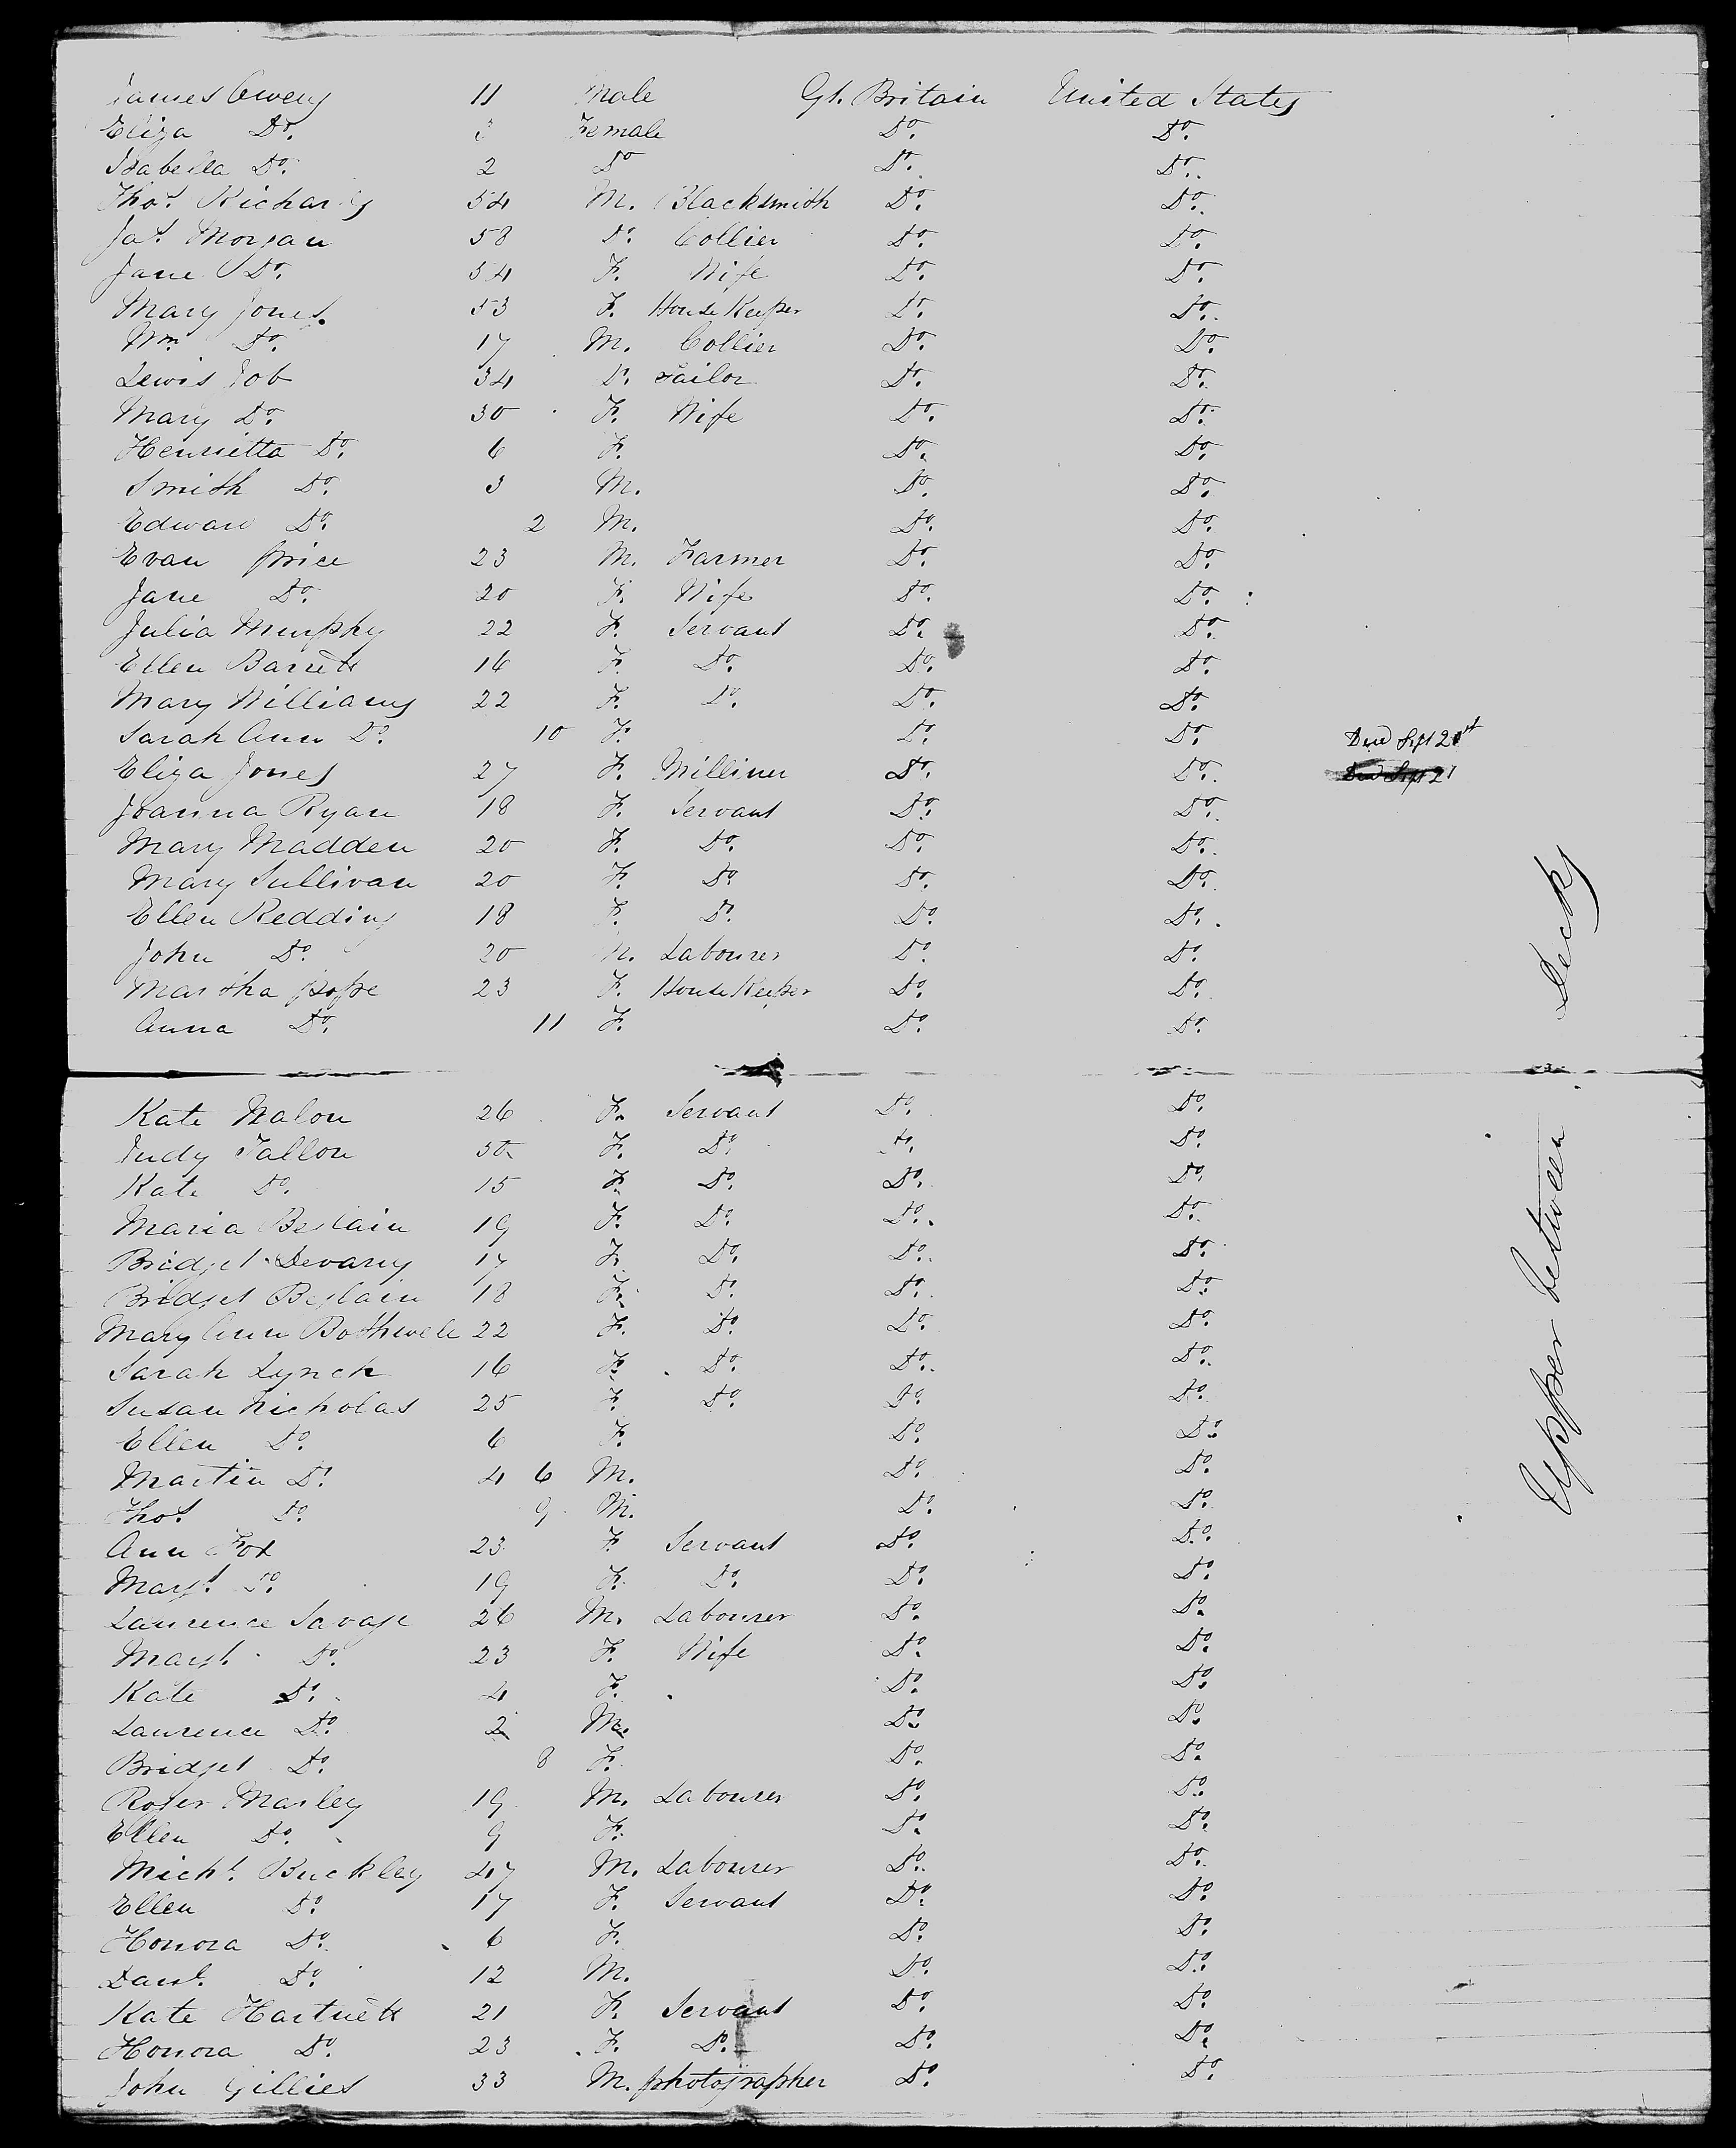 James Owens 11 Male Gt. Britain United States
Eliza Do. 3 Female Do. Do.
Isabella Do. 2 Do Do. Do.
Thos. Richards 54 M. Blacksmith Do. Do.
Jas. Morgan 58 Do. Collier Do. Do.
Jane Do. 54 F. Wife Do. Do.
Mary Jones. 53 F. House Keeper Do. Do.
Wm. Do. 17 M. Collier Do. Do.
Lewis Job 34 Do. Tailor Do. Do.
Mary Do. 30 F. Wife Do. Do.
Henrietta Do. 6 F. Do. Do.
Smith Do. 3 M. Do. Do.
Edward Do. 2 M. Do. Do.
Evan Price 23 M. Farmer Do. Do.
Jane Do. 20 F. Wife Do. Do.
Julia Murphy 22 F. Servant Do. Do.
Ellen Barrett 16 F. Do. Do. Do.
Mary Williams 22 F. Do. Do. Do.
Sarah Ann Do. 10 F. Do. Do. Died Sept 21st
Eliza Jones 27 F. Milliner Do. Do. Died Sept 21
Joanna Ryan 18 F. Servant Do. Do.
Mary Madden 20 F. Do. Do. Do.
Mary Sullivan 20 F. Do. Do. Do.
Ellen Redding 18 F. Do. Do. Do.
John Do. 20 M. Labourer Do. Do.
Martha Pope 23 F. House Keeper Do. Do.
Anna Do. 11 F. Do. Do.
Kate 26 F. Servant Do. Do.
Judy Fallon 50 F. Do. Do. Do.
Kate Do. 15 F. Do. Do. Do.
Maria 19 F. Do. Do. Do.
Bridget Devany 17 F. Do. Do. Do.
Bridget 18 F. Do. Do. Do.
Mary Ann Bothwell 22 F. Do. Do. Do.
Sarah Lynch 16 F. Do. Do. Do.
Susan Nicholas 25 F. Do. Do. Do.
Ellen Do. 6 F. Do. Do.
Martin Do. 4 6 M. Do. Do.
Thos. Do. 9 M. Do. Do.
Ann Fox 23 F. Servant Do. Do.
Margt. Do. 19 F. Do. Do. Do.
Laurence Savage 26 M. Labourer Do. Do.
Margt. Do. 23 F. Wife Do. Do.
Kate Do. 4 F. Do. Do.
Laurence Do. 2 M. Do. Do.
Bridget Do. 8 F. Do. Do.
Roger Marley 19 M. Labourer Do. Do.
Ellen Do. 9 F. Do. Do.
Michl. Buckley 47 M. Labourer Do. Do.
Ellen Do. 17 F. Servant Do. Do.
Honora Do. 6 F. Do. Do.
Danl. Do. 12 M. Do. Do.
Kate Hartnett 21 F. Servant Do. Do.
Honora Do. 23 F. Do. Do. Do.
John Gillies 33 M. photographer Do. Do.
Upper between Decks